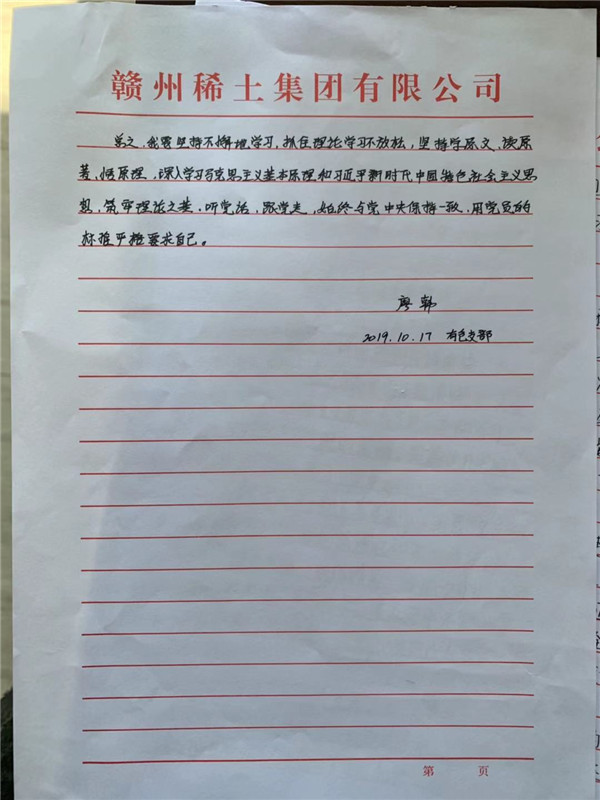 赣州稀土集团有限公司
总之,我需坚持不懈地学习,抓住理论学习不放松,坚持学原文、读原
著、悟原理,深入学习马克思主义基本原理和习近平新时代中国特色社会主义思
想,筑牢理论之基,听党话,跟党走,始终与党中央保持一致,用党员的
标准严格要求自己。
廖韩
2019.10.17 有色支部
第 页